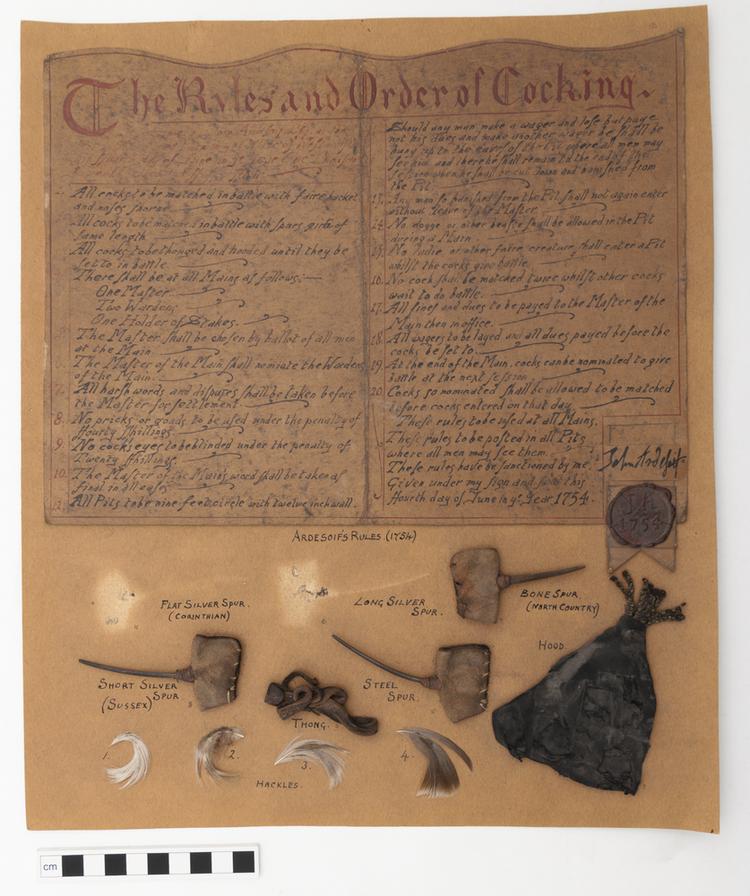 The Rules and Order of Cocking.
All cocks to be matched in battle with faire hackel
and noses shorne.
All cocks to be matched in battle with spurs, girts of
same length
All cocks to be thonged and hooded until they be
set to in battle
There shall be at all Mains as follows:—
One Master
Two Wardens
One Holder of Stakes.
The Master shall be chosen by ballot of all men
at the Main
The Master of the Main shall nominate the Wardens
of the Main.
7. All harsh words and disputes shall be taken before
the Master for settlement
8. No pricks or goads to be used under the penalty of
ffourty shillings
9. No cocks eyes to be blinded under the penalty of
Twenty shillings
10. The Master of the Mains word shall be taken as
final in all cases
All Pits to be nine feet circle with twelve inch wall.
Should any man make a wager and lose but paye
not his dues and make another wager he shall be
hung up to the eaves of the Pit where all men may
see him and there he shall remain to the end of the
session when he shall be cut down and banished from
the Pit
Any man so banished from the Pit shall not again enter
without leave of the Master
14. No dogge or other beaste shall be allowed in the Pit
during a Main
15. No ladie or other faire creature shall enter a Pit
whilst the cocks give battle.
16. No cock shall be matched twice whilst other cocks
wait to do battle.
17. All fines and dues to be payed to the Master of the
Main then in office.
18. All wagers to be layed and all dues payed before the
cocks be set to.
19. At the end of the Main, cocks can be nominated to give
battle at the next session
20. Cocks so nominated shall be allowed to be matched
before cocks entered on that day
These rules to be used at all Mains,
These rules to be posted in all Pits
where all men may see them.
These rules have be sanctioned by me
Given under my sign and this
ffourth day of June in ye Year 1754.
John Ardesoif
J.A.
1754
ARDESOIF'S RULES (1754)
FLAT SILVER SPUR.
(CORINTHIAN)
LONG SILVER
SPUR.
BONE SPUR.
(NORTH COUNTRY)
HOOD.
SHORT SILVER
SPUR
(SUSSEX)
STEEL
SPUR.
THONG.
1.
2.
3.
4.
HACKLES.
cm